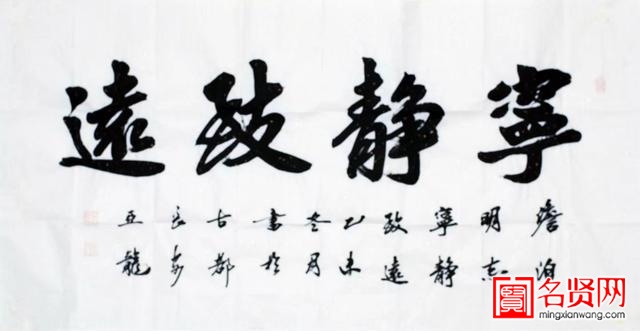 寧静致遠
澹泊
明志
寧静
致遠
乙未
冬月
書於
古都
長安
亚龍
名贤网
mingxianwang.com